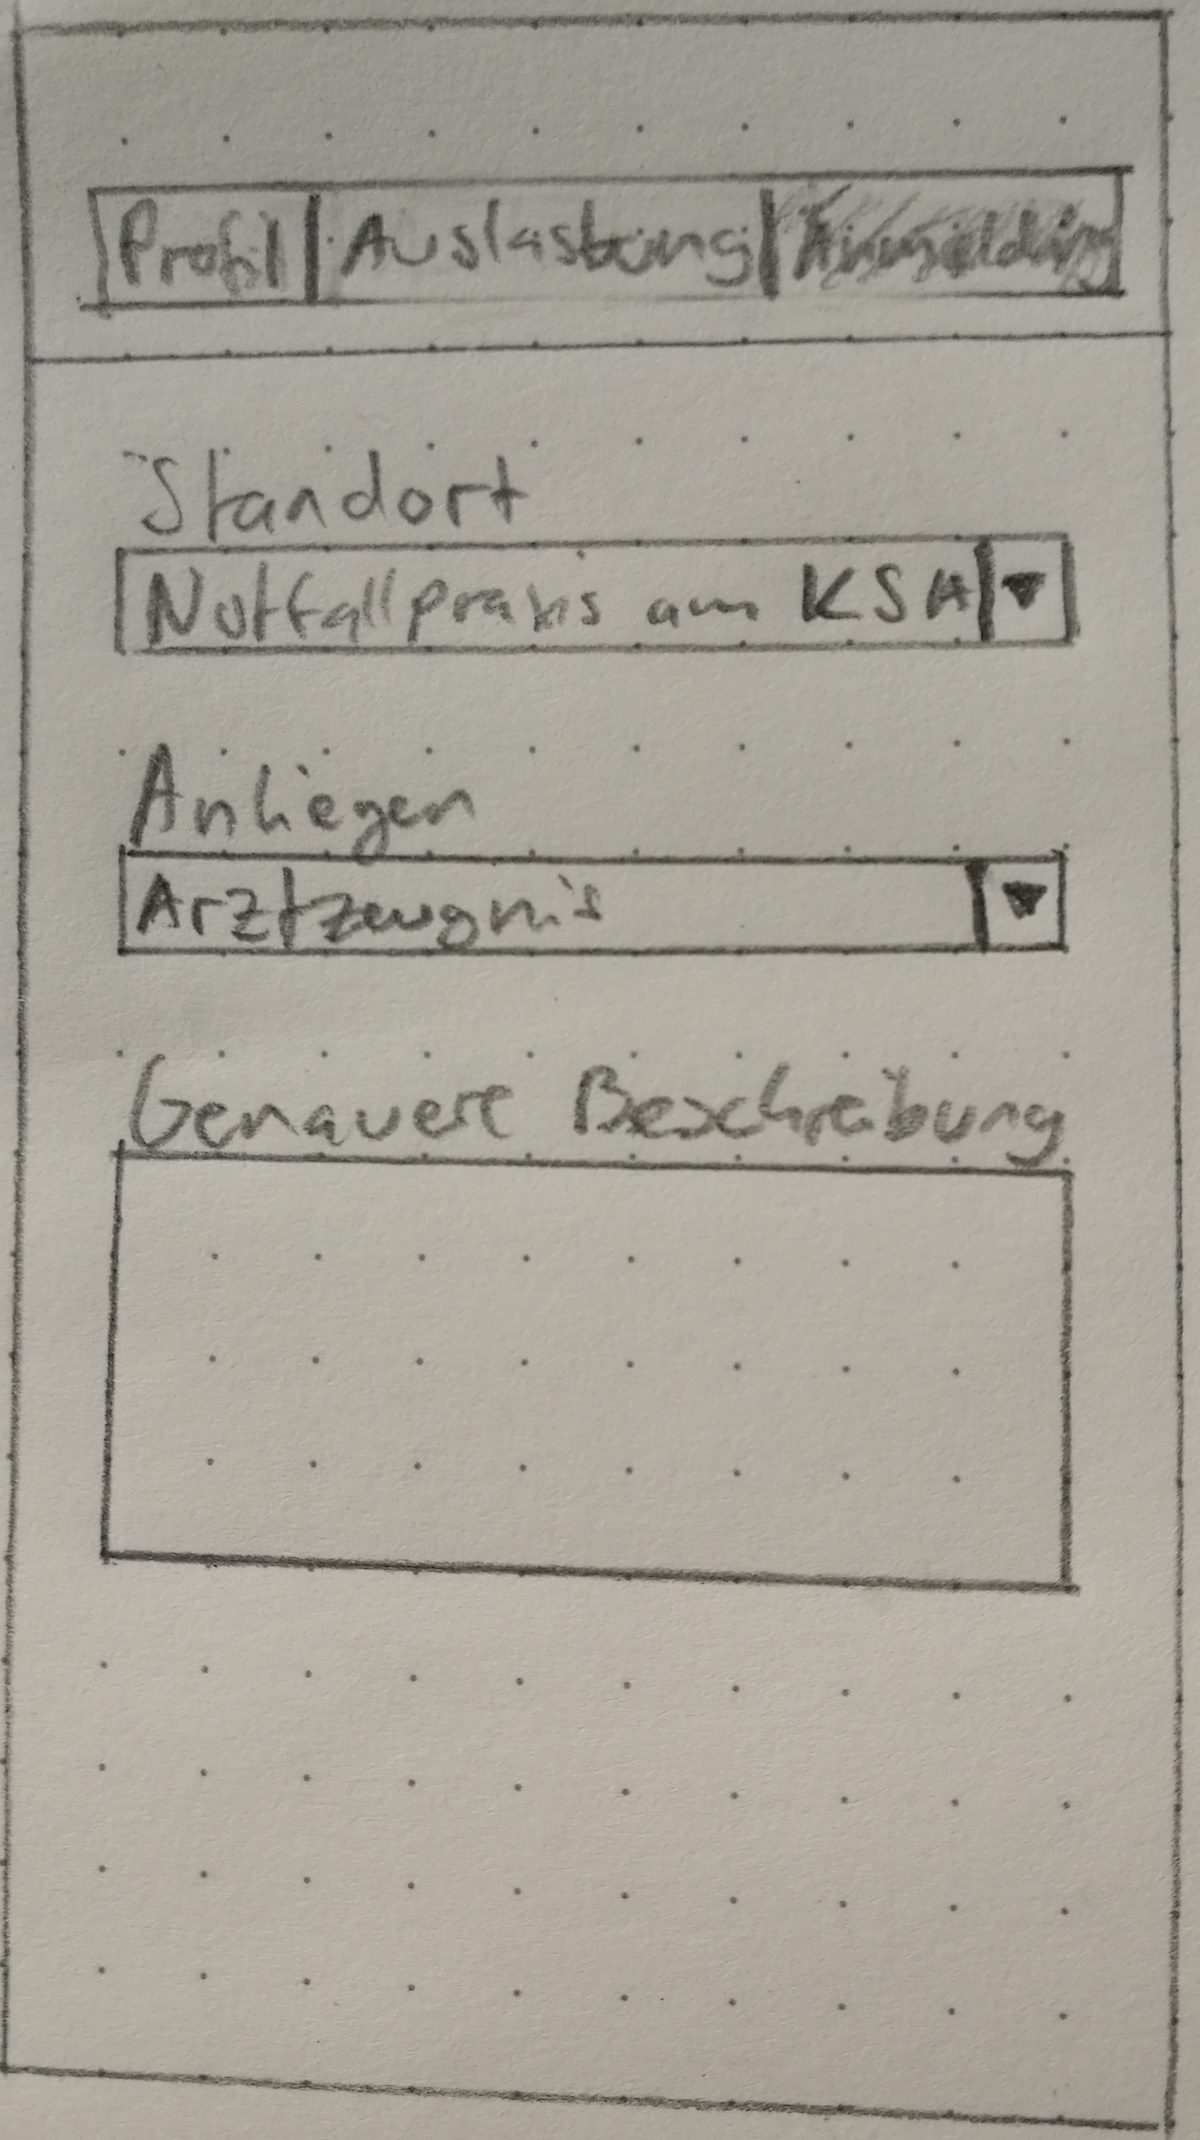 Profil Auslastung Anmeldung
Standort
Notfallpraxis am KSA
Anliegen
Arztzeugnis
Genauere Beschreibung